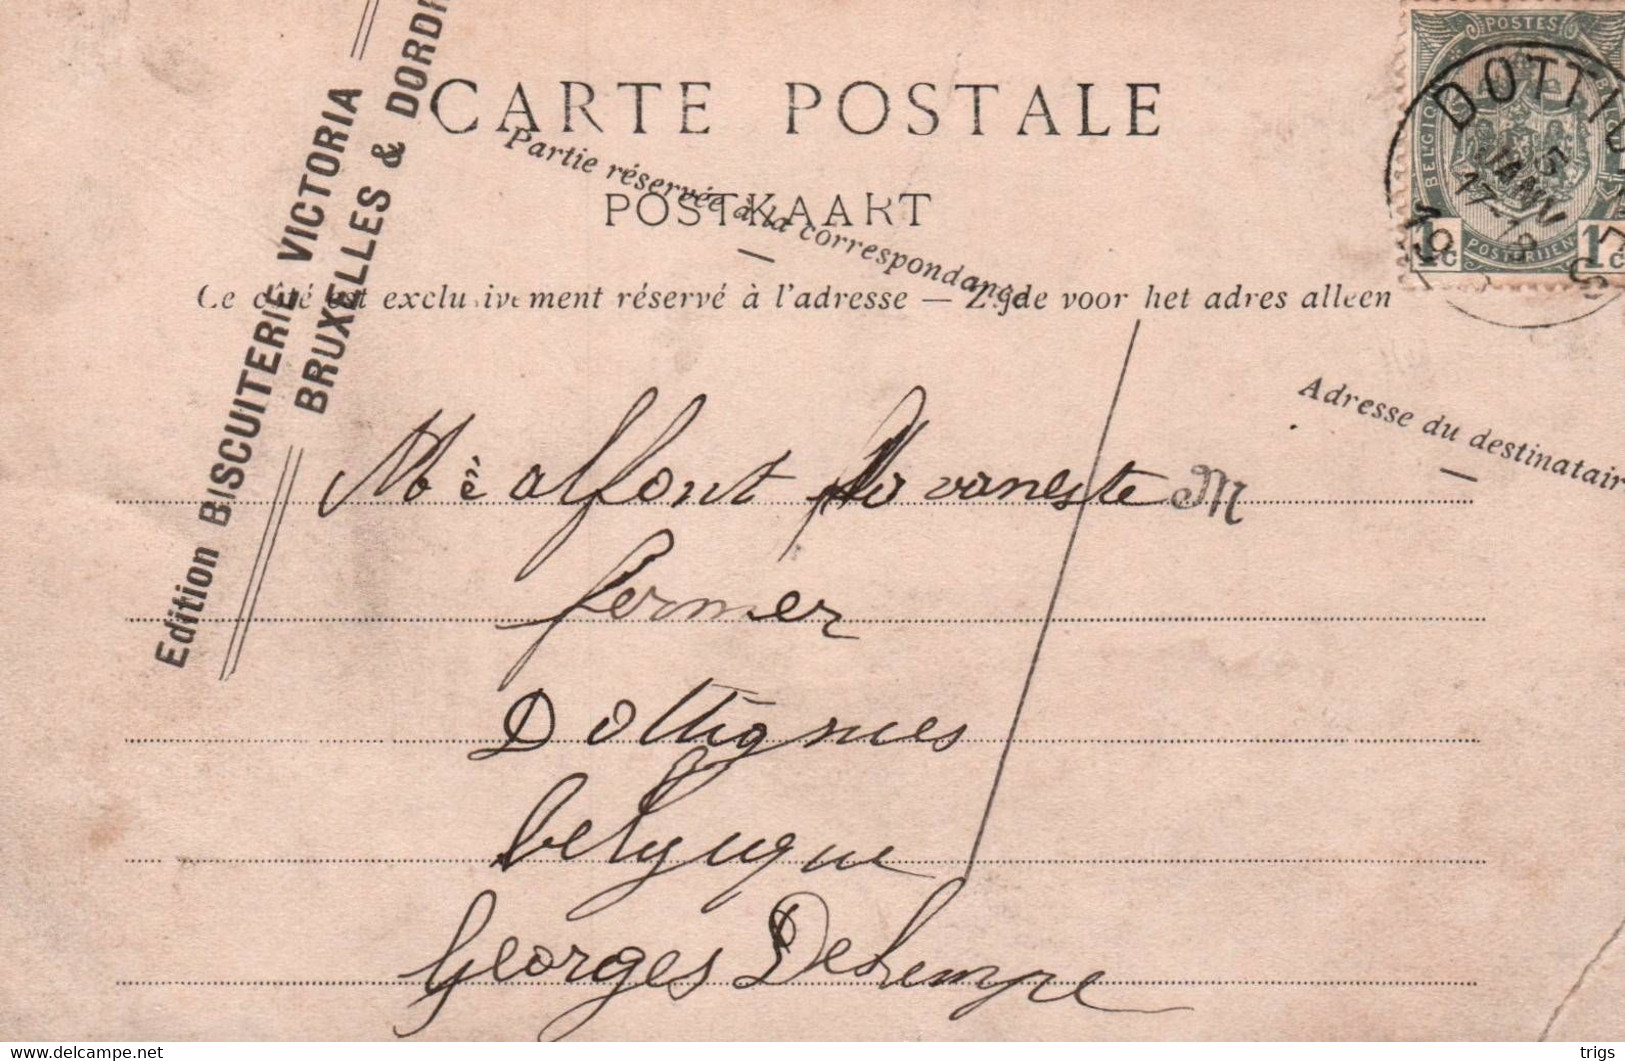 Edition BISCUITERIE VICTORIA
BRUXELLES & DORDR
CARTE POSTALE
Partie réservée à la correspondance
POSTKAART
Ce côté est exclusivement réservé à l'adresse — Zijde voor het adres alleen
Adresse du destinatair
POSTES
BELGIQUE
POSTERIJEN
1c 1c
DOTTIG
5
JANV
17-18
19
M alfont vaneste M
fermer
Dottignies
belgugue
Georges
trigs